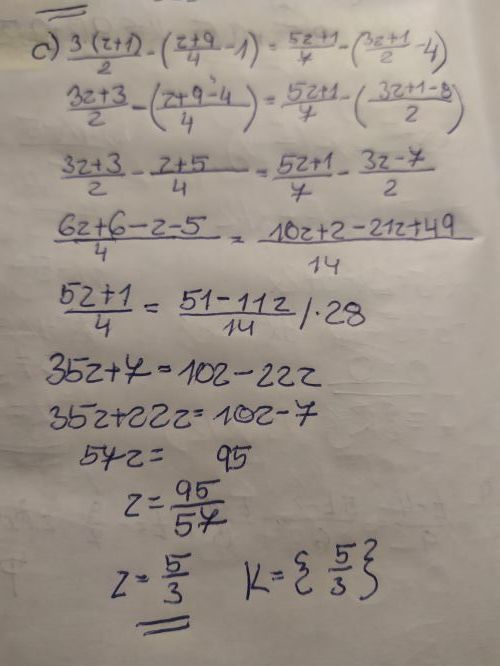 c) 3(z+1)/2 - (z+9/4 - 1) = 5z+1/7 - (3z+1/2 - 4)
3z+3/2 - (z+9-4/4) = 5z+1/7 - (3z+1-8/2)
3z+3/2 - z+5/4 = 5z+1/7 - 3z-7/2
6z+6-z-5/4 = 10z+2-21z+49/14
5z+1/4 = 51-11z/14 /·28
35z+7=102-22z
35z+22z=102-7
57z= 95
z=95/57
z=5/3 K={5/3}